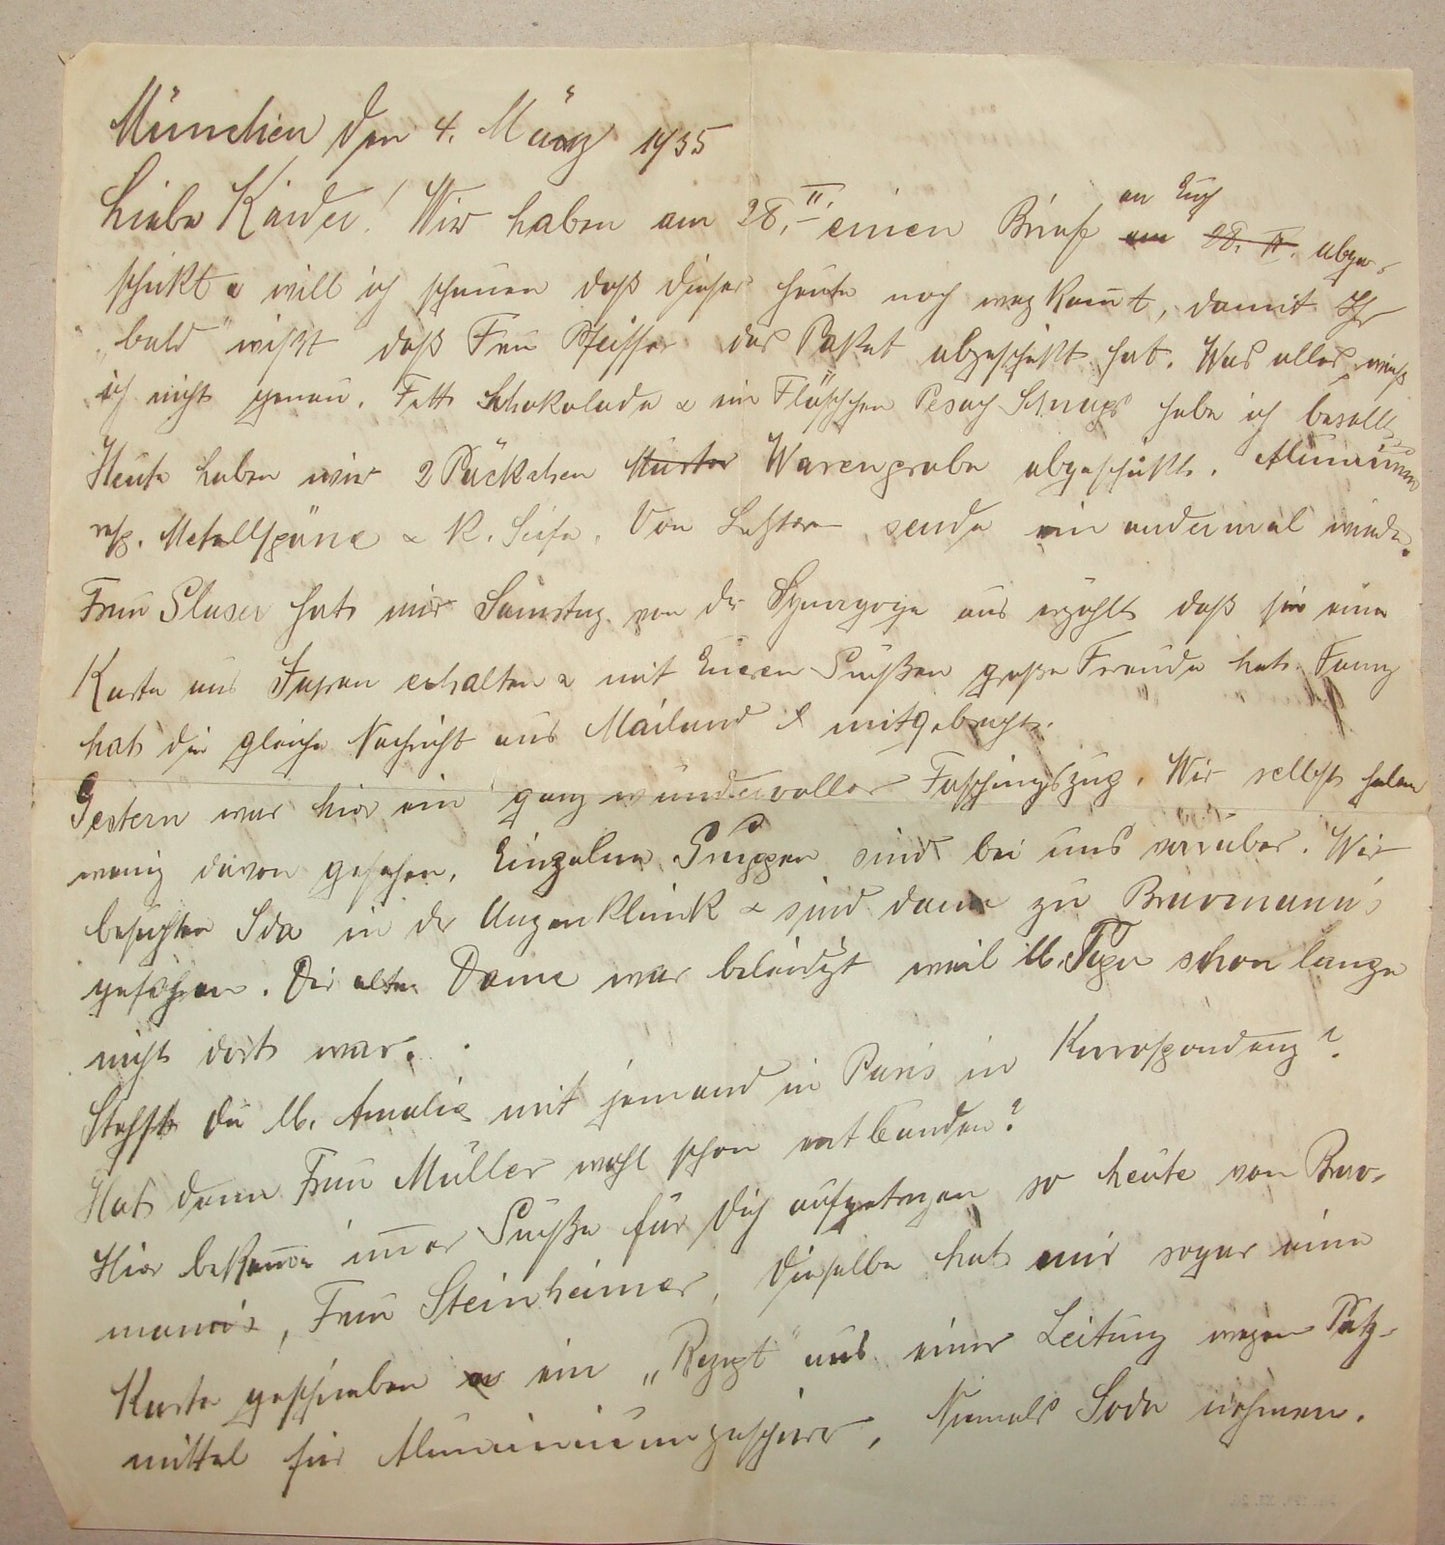 München den 4. März 1935
Liebe Kinder! Wir haben am 28. II. einen Brief an Euch am 28. II. abge-
schickt & will ich schauen daß dieser heute noch weg kom̅t, damit Ihr
"bald" wißt daß Frau Pfeiffer das Paket abgeschickt hat. Was alles weiß
ich nicht genau. Fett Schokolade & ein Fläschchen Pesach Schnaps habe ich bestellt
Heute haben wir 2 Päckchen Muster Warenprobe abgeschickt. Aluminium
resp. Metallspäne & K. Seife. Von Letzterer sende ein andermal wieder.
Frau Glaser hat mir Samstag von der Synagoge aus erzählt daß sie eine
Karte aus Japan erhalten & mit Eueren Grüßen große Freude hat. Fanny
hat die gleiche Nachricht aus Mailand mitgebracht.
Gestern war hier ein ganz wundervoller Faschingszug. Wir selbst haben
wenig davon gesehen. Einzelne Gruppen sind bei uns vorüber. Wir
besuchten Ida in der Augenklinik & sind dann zu Bravmann's
gefahren. Die alte Dame war beleidigt weil lb. schon lange
nicht dort war.
Stehst Du lb. Amalie mit jemand in Paris in Korrespondenz?
Hat denn Frau Müller wohl schon entbunden?
Hier bekom̅e im̅er Grüße für Dich aufgetragen so heute von Brav-
mann's, Frau Steinheimer, dieselbe hat mir sogar eine
Karte geschrieben ein „Rezept" aus einer Zeitung wegen Putz-
mittel für Aluminiumgeschirr, Niemals Soda nehmen.